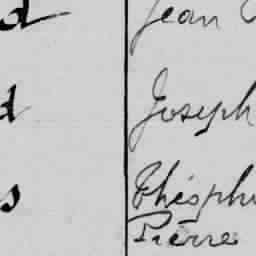 d Jean
d Joseph
s Théophi
Pierre